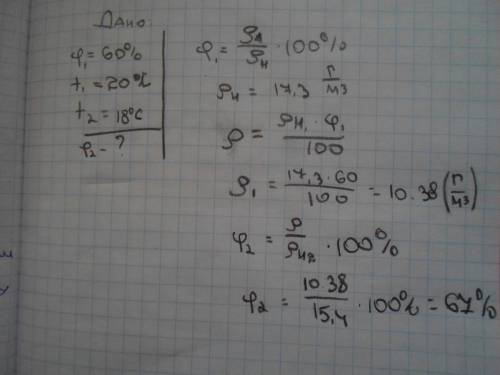 Дано:
φ₁ = 60%
t₁ = 20°C
t₂ = 18°C
φ₂ - ?
φ₁ = ρ₁/ρн · 100%
ρн = 17,3 г/м³
ρ = ρн₁ · φ₁ / 100
ρ₁ = 17,3 · 60 / 100 = 10.38 (г/м³)
φ₂ = ρ/ρн₂ · 100%
φ₂ = 10.38/15,4 · 100% = 67%